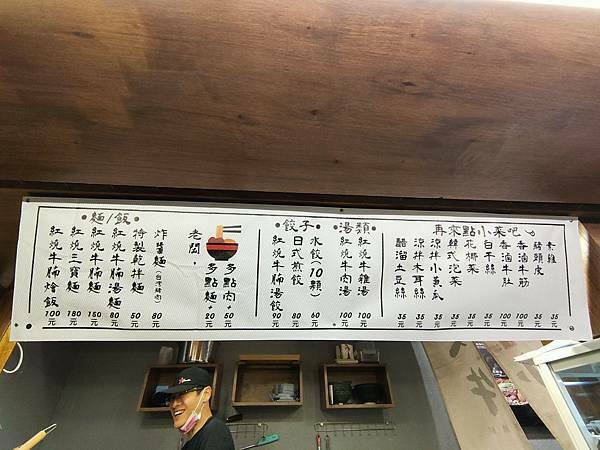 麵/飯
紅燒牛腩燴飯 100元
紅燒三寶麵 180元
紅燒牛腩麵 150元
紅燒牛腩湯麵 80元
特製乾拌麵 50元
炸醬麵(台灣豬肉) 80元
老闆,
多點麵+20元
多點肉+50元
餃子
紅燒牛腩湯餃 90元
日式煎餃 80元
水餃(10顆) 60元
湯類
紅燒牛肉湯 100元
紅燒牛雜湯 100元
再來點小菜吧
醋溜土豆絲 35元
涼拌木耳絲 35元
涼拌小黃瓜 35元
韓式泡菜 35元
花椰菜 35元
白干絲 35元
香滷牛肚 100元
香滷牛筋 100元
豬頭皮 35元
素雞 35元